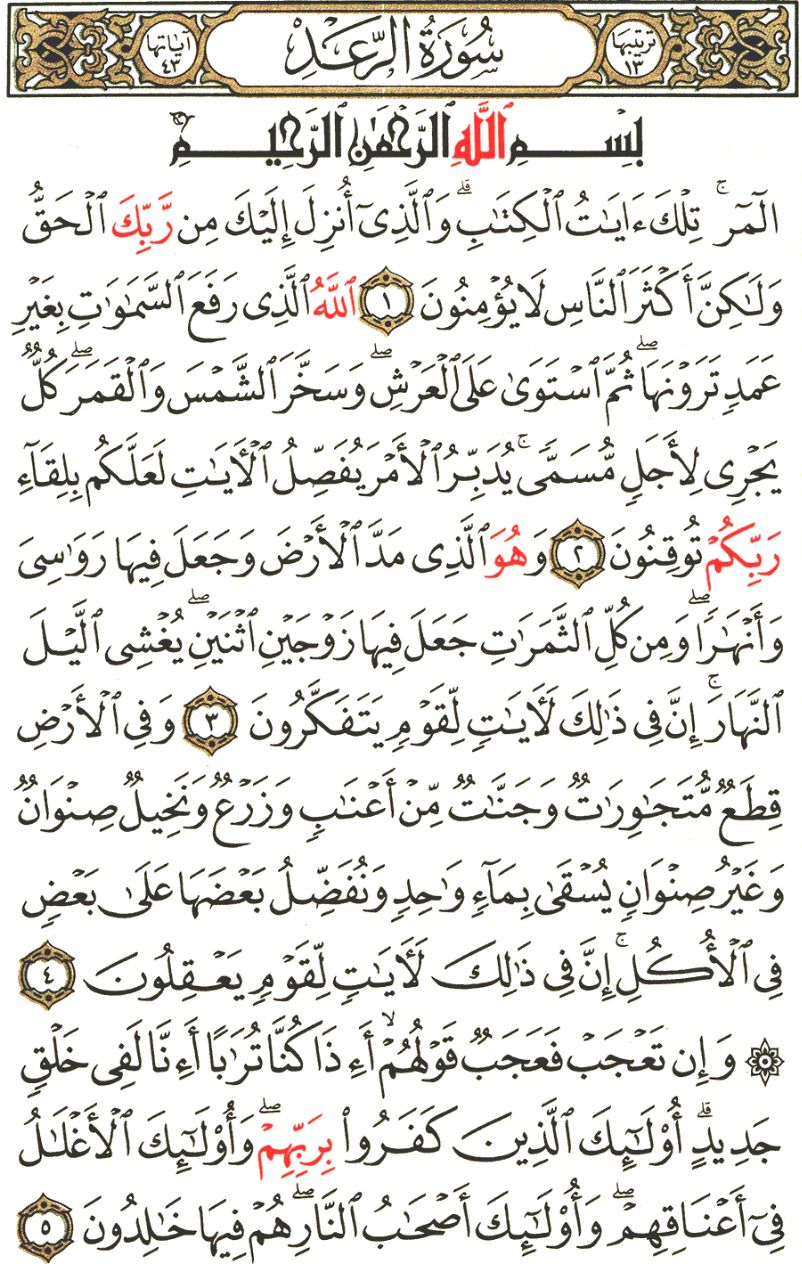 ترتيبها ١٣ سُورَةُ الرَّعْدِ آياتها ٤٣
بِسْمِ ٱللَّهِ ٱلرَّحْمَٰنِ ٱلرَّحِيمِ
الٓمٓرۚ تِلْكَ ءَايَٰتُ ٱلْكِتَٰبِۗ وَٱلَّذِىٓ أُنزِلَ إِلَيْكَ مِن رَّبِّكَ ٱلْحَقُّ
وَلَٰكِنَّ أَكْثَرَ ٱلنَّاسِ لَا يُؤْمِنُونَ ١ ٱللَّهُ ٱلَّذِى رَفَعَ ٱلسَّمَٰوَٰتِ بِغَيْرِ
عَمَدٍ تَرَوْنَهَاۖ ثُمَّ ٱسْتَوَىٰ عَلَى ٱلْعَرْشِۖ وَسَخَّرَ ٱلشَّمْسَ وَٱلْقَمَرَۖ كُلٌّ
يَجْرِى لِأَجَلٍ مُّسَمًّىۚ يُدَبِّرُ ٱلْأَمْرَ يُفَصِّلُ ٱلْأَيَٰتِ لَعَلَّكُم بِلِقَآءِ
رَبِّكُمْ تُوقِنُونَ ٢ وَهُوَ ٱلَّذِى مَدَّ ٱلْأَرْضَ وَجَعَلَ فِيهَا رَوَٰسِىَ
وَأَنْهَٰرًاۖ وَمِن كُلِّ ٱلثَّمَرَٰتِ جَعَلَ فِيهَا زَوْجَيْنِ ٱثْنَيْنِۖ يُغْشِى ٱلَّيْلَ
ٱلنَّهَارَۚ إِنَّ فِى ذَٰلِكَ لَأَيَٰتٍ لِّقَوْمٍ يَتَفَكَّرُونَ ٣ وَفِى ٱلْأَرْضِ
قِطَعٌ مُّتَجَٰوِرَٰتٌ وَجَنَّٰتٌ مِّنْ أَعْنَٰبٍ وَزَرْعٌ وَنَخِيلٌ صِنْوَانٌ
وَغَيْرُ صِنْوَانٍ يُسْقَىٰ بِمَآءٍ وَٰحِدٍ وَنُفَضِّلُ بَعْضَهَا عَلَىٰ بَعْضٍ
فِى ٱلْأُكُلِۚ إِنَّ فِى ذَٰلِكَ لَأَيَٰتٍ لِّقَوْمٍ يَعْقِلُونَ ٤
۞ وَإِن تَعْجَبْ فَعَجَبٌ قَوْلُهُمْۙ أَءِذَا كُنَّا تُرَٰبًا أَءِنَّا لَفِى خَلْقٍ
جَدِيدٍۗ أُوْلَٰٓئِكَ ٱلَّذِينَ كَفَرُواْ بِرَبِّهِمْۖ وَأُوْلَٰٓئِكَ ٱلْأَغْلَٰلُ
فِىٓ أَعْنَاقِهِمْۖ وَأُوْلَٰٓئِكَ أَصْحَٰبُ ٱلنَّارِۖ هُمْ فِيهَا خَٰلِدُونَ ٥